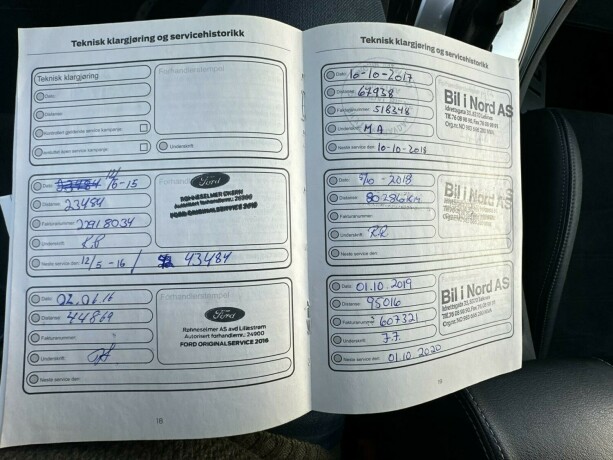 Teknisk klargjøring og servicehistorikk
Teknisk klargjøring
Forhandlerstempel
Dato:
Distanse:
Kontrollert gjeldende service kampanje:
Underskrift:
Dato: 6-15
Distanse: 23484
Fakturanummer:
Underskrift:
Neste service den: 12/5 - 16 / 43484
Ford
RØHNESELMER
Autorisert forhandlernr.: 24900
FORD ORIGINALSERVICE 2015
Dato: 02.06.16
Distanse: 44869
Fakturanummer:
Underskrift:
Neste service den:
Forhandlerstempel
Ford
Røhneselmer AS avd Lillestrøm
Autorisert forhandlernr.: 24900
FORD ORIGINALSERVICE 2016
18
Teknisk klargjøring og servicehistorikk
Dato: 10-10-2017
Distanse: 67938
Fakturanummer: 518348
Underskrift: M.A
Neste service den: 10-10-2018
Bil i Nord AS
Dato: 5/10 - 2018
Distanse:
Fakturanummer:
Underskrift: RR
Neste service den:
Bil i Nord AS
Dato: 01.10.2019
Distanse: 95016
Fakturanummer: 607321
Underskrift: J.J.
Neste service den: 01.10.2020
Bil i Nord AS